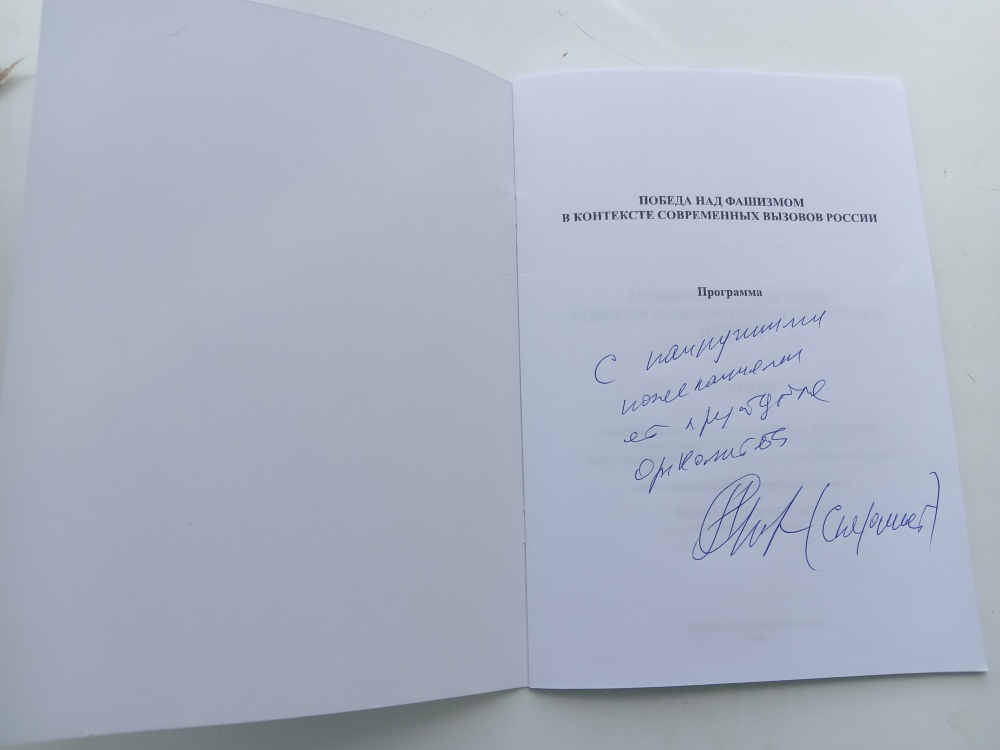 ПОБЕДА НАД ФАШИЗМОМ
В КОНТЕКСТЕ СОВРЕМЕННЫХ ВЫЗОВОВ РОССИИ
Программа
С наилучшими
пожеланиями
от
Оргкомитета